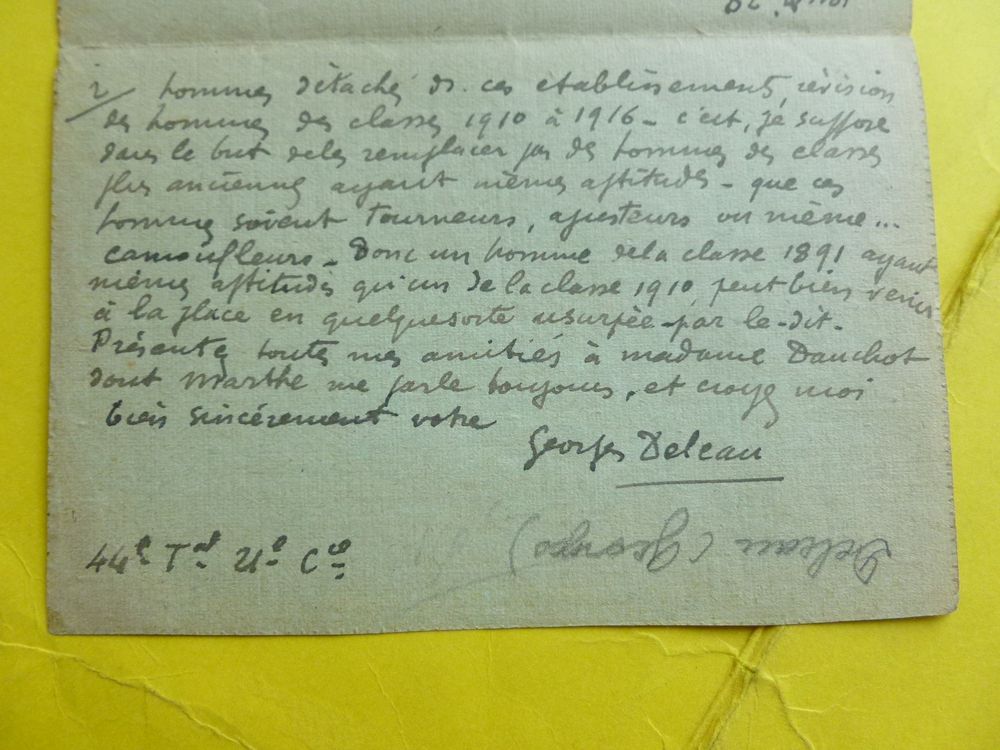 2/ hommes détaché ds. ces établissement, révision
des hommes des classes 1910 à 1916 - c'est, je suppose
dans le but de les remplacer par des hommes des classes
plus ancienne ayant mêmes aptitudes - que ces
hommes soient tourneurs, ajusteurs ou même...
camoufleurs - Donc un homme de la classe 1891 ayant
mêmes aptitudes qu'un de la classe 1910, peut bien venir
à la place en quelque sorte usurpée par le-dit.
Présentez toutes mes amitiés à madame Dauchot
dont Marthe me parle toujours, et croyez moi
bien sincèrement votre
Georges Deleau
44e Tal 21e Cie
Deleau (Georges)